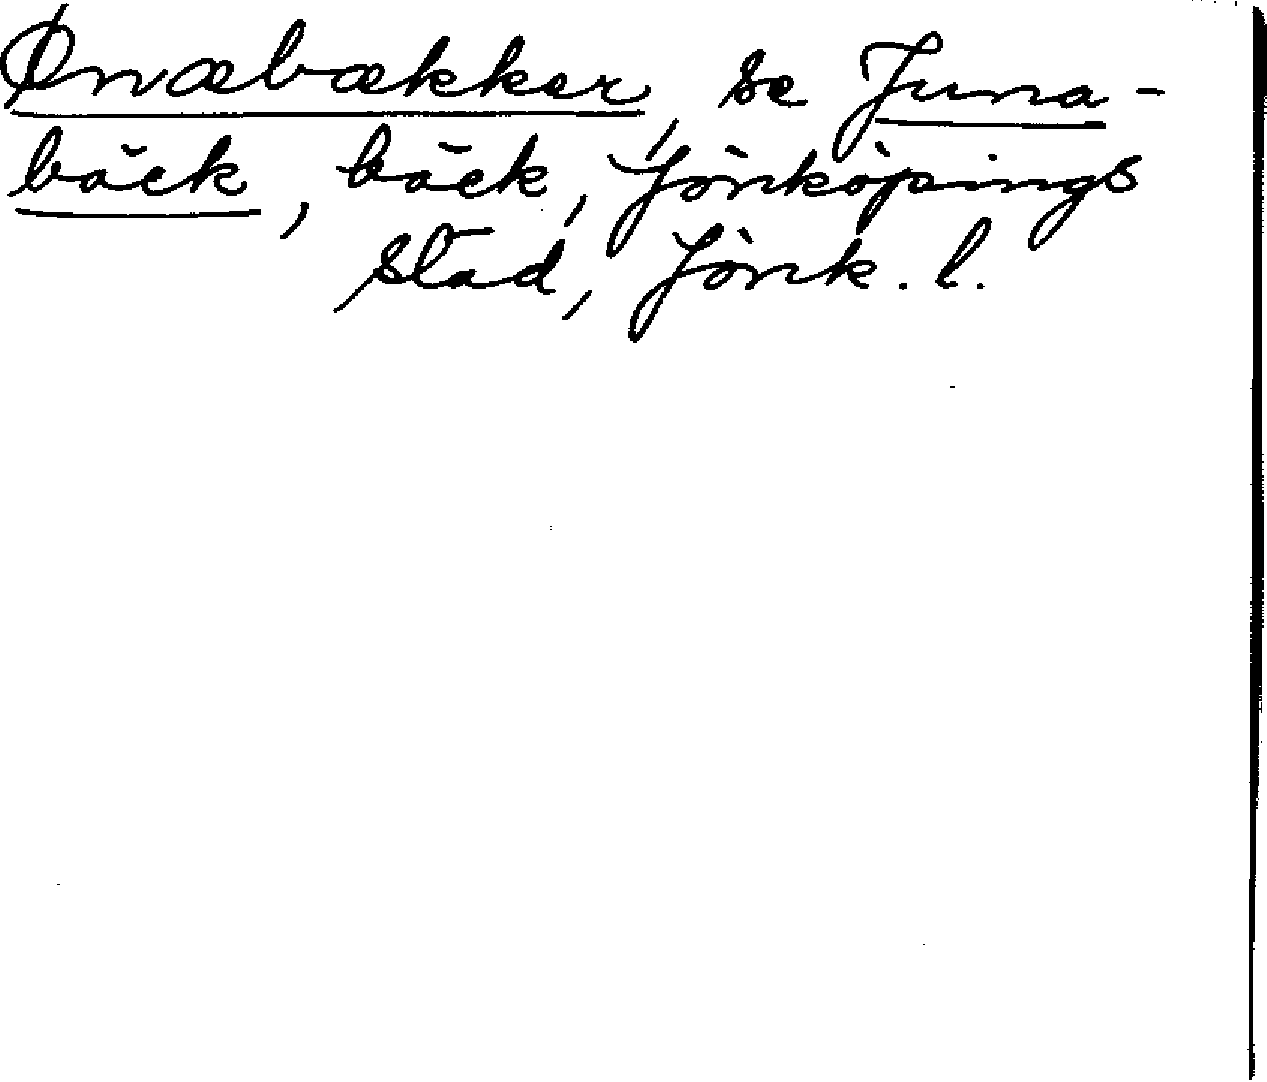 Ønæbækker, se Juna-
bäck, bäck, Jönköpings
stad, Jönk. l.